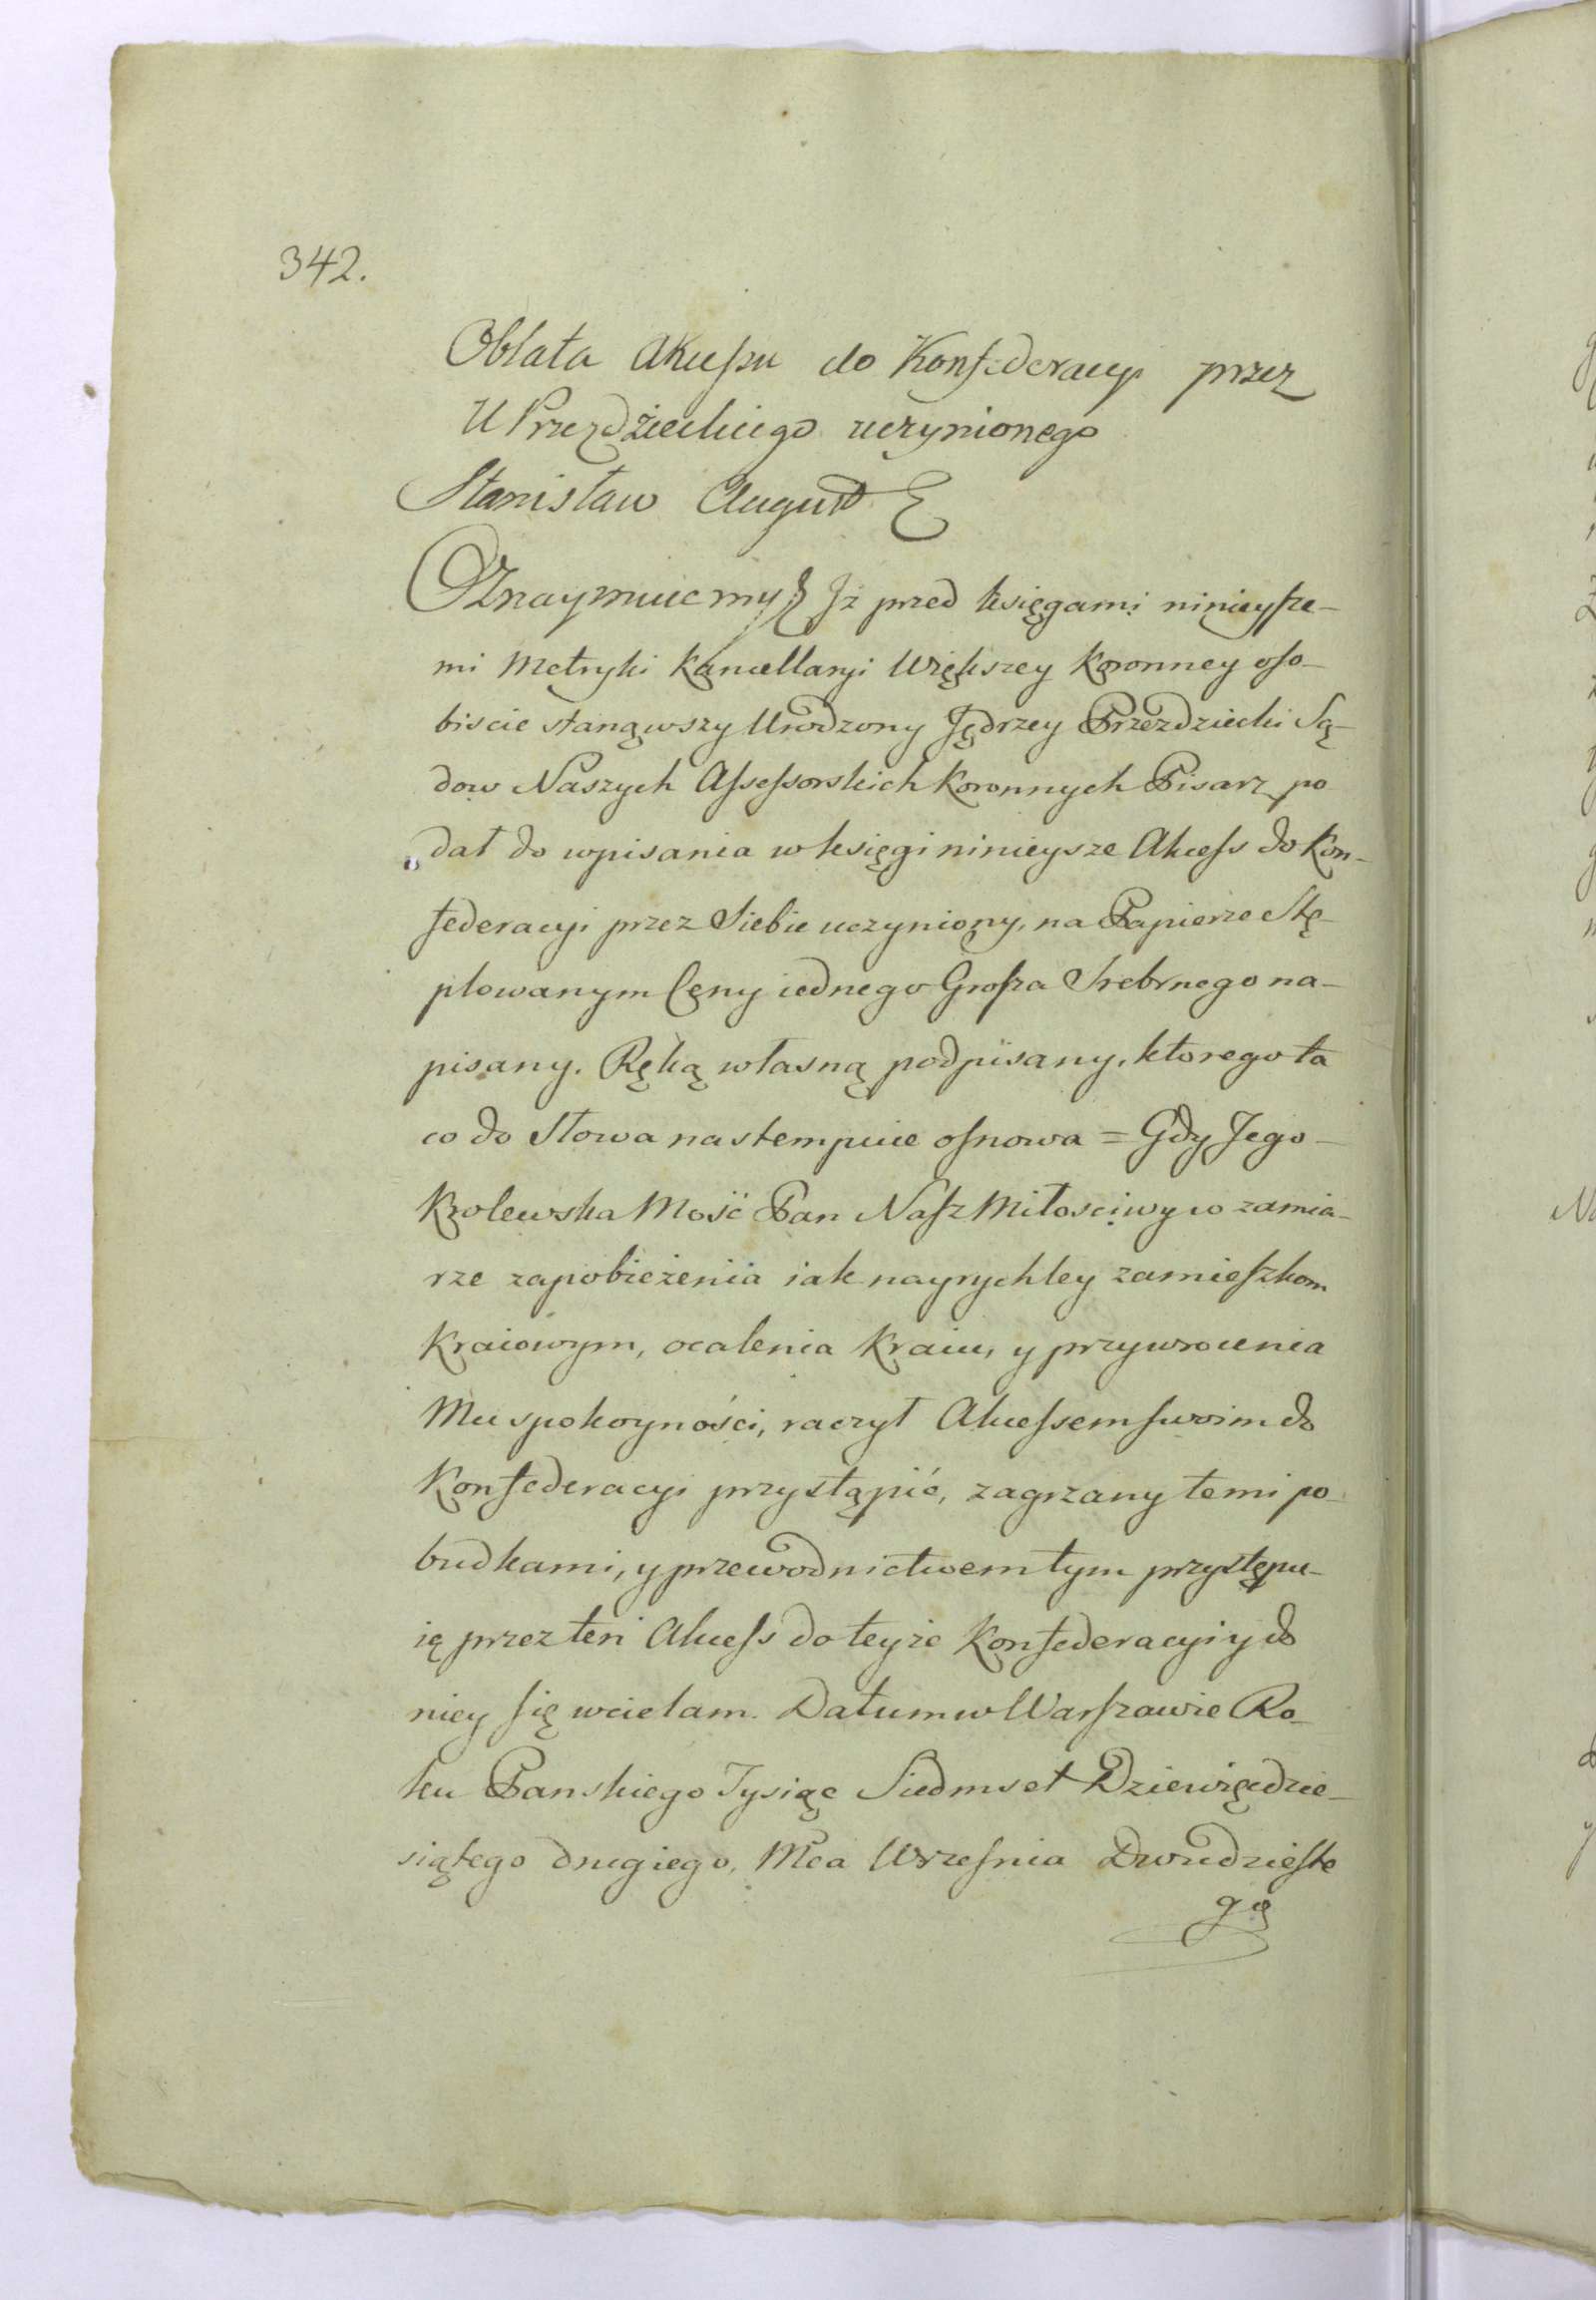 342.
Oblata Akcessu do Konfederacyi przez
U Przezdzieckiego uczynionego
Stanisław August &
Oznaymuiemy Jż przed księgami ninieysze-
mi Metryki Kancellaryi Większey Koronney oso-
biscie stanąwszy Urodzony Jędrzey Przezdziecki Są-
dow Naszych Assessorskich Koronnych Pisarz po
dał do wpisania w księgi ninieysze Akcess do Kon-
federacyi przez Siebie uczyniony, na Papierze Stę-
plowanym Ceny iednego Grosza Srebrnego na-
pisany. Ręką własną podpisany, ktorego ta
co do Słowa nastempuie osnowa = Gdy Jego-
Krolewska Mość Pan Nasz Miłosciwy w zamia-
rze zapobieżenia iak nayrychley zamieszkom
Kraiowym, ocalenia Kraiu, y przywrocenia
Mu spokoyności, raczył Akcessem swoim do
Konfederacyi przystąpić, zagrzany temi po
budkami, y przewodnictwem tym przystępu-
ię przez ten Akcess do teyże Konfederacyi y do
niey się wcielam. Datum w Warszawie Ro-
ku Panskiego Tysiąc Siedmset Dziewięcdzie-
siątego drugiego, Mca Wrzesnia Dwudzieste
go